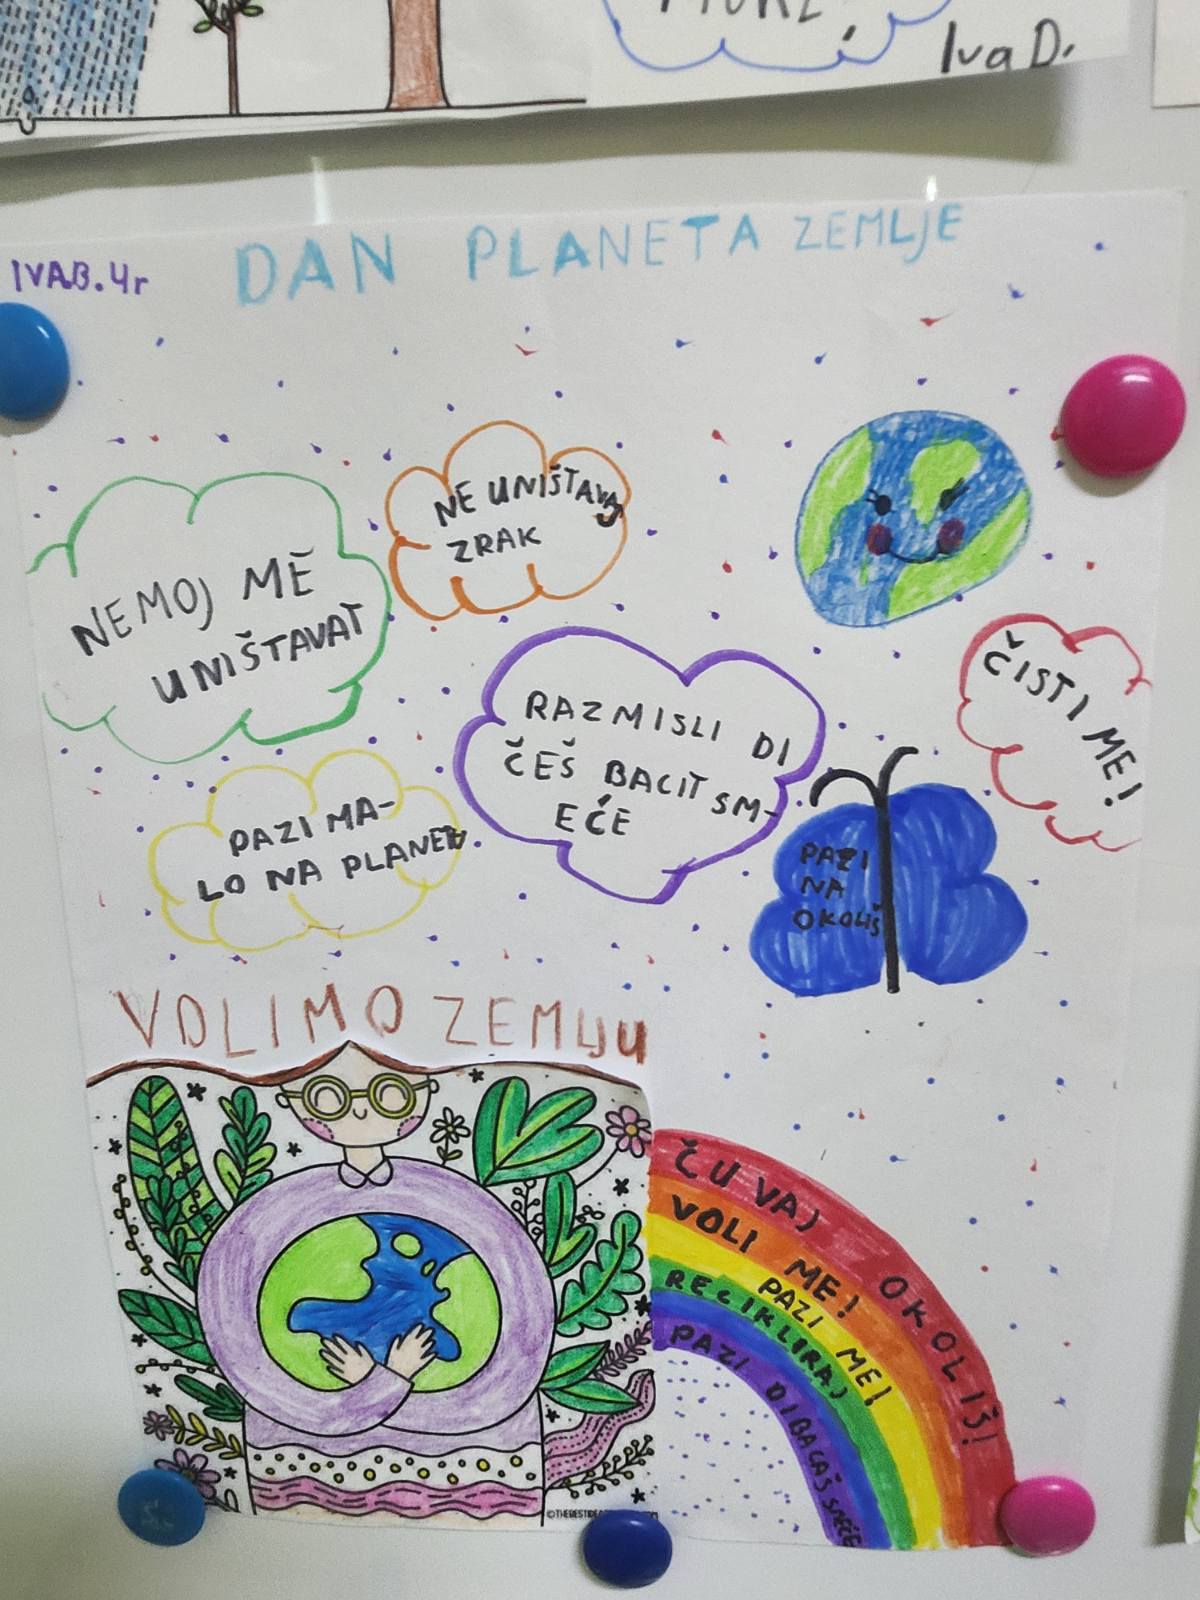 Iva D.
IVA B. 4r
DAN PLANETA ZEMLJE
NE UNIŠTAVAJ
ZRAK
NEMOJ ME
UNIŠTAVAT
RAZMISLI DI
ČEŠ BACIT SM-
EĆE
ČISTI ME!
PAZI MA-
LO NA PLANET
PAZI
NA
OKOLIŠ
VOLIMO ZEMLJU
ČUVAJ OKOLIŠ!
VOLI ME!
PAZI ME!
RECIKLIRAJ
PAZI DI BACAŠ SMEĆE